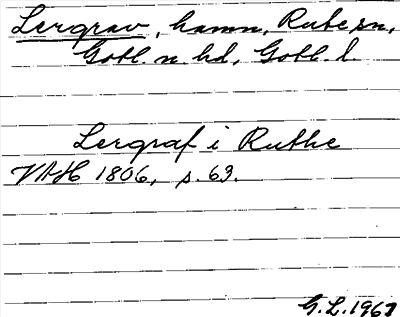 Lergrav, hamn, Rute sn,
Gotl. n. hd, Gotl. l.
Lergraf i Ruthe
VAH 1806, s. 63.
G.L. 1967